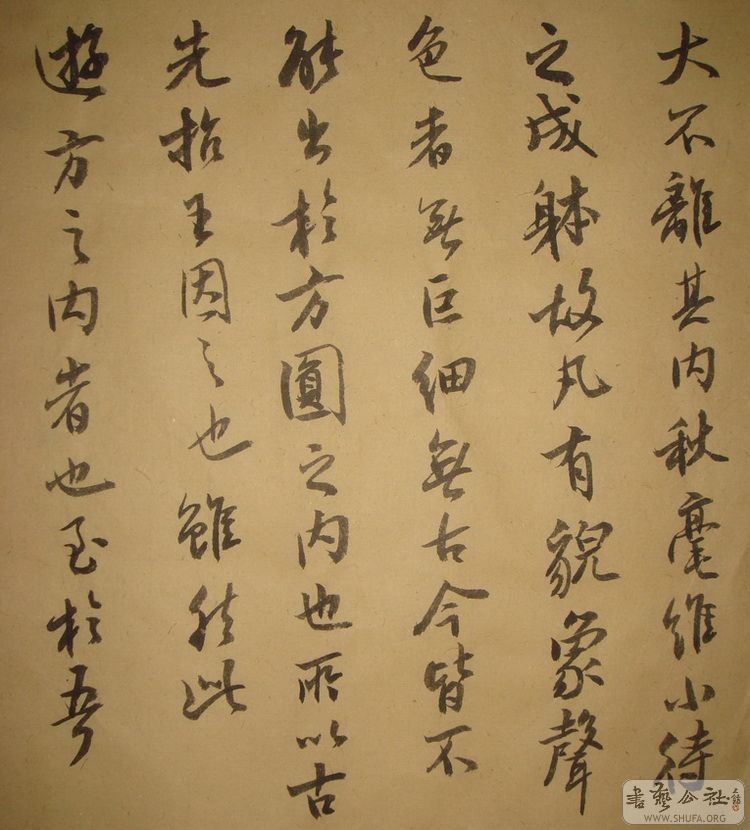 大不離其内秋毫雖小待
之成躰故凡有貌象聲
色者無巨細無古今皆不
能出於方圓之内也所以古
先招王因之也雖然此
遊方之内者也至於吾
書藝公社
WWW.SHUFA.ORG